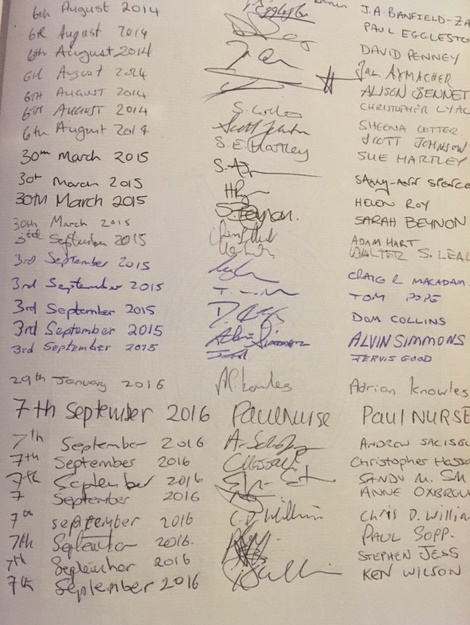 6th August 2014 J.A. BANFIELD-ZA
6th August 2014 PAUL EGGLESTO
6th August 2014 DAVID PENNEY
6th August 2014 AYMACHER
6TH AUGUST 2014 ALISON BENNET
6TH AUGUST 2014 CHRISTOPHER LYAL
6th August 2014 SHEENA COTTER
SCOTT JOHNSON
30th March 2015 S.E. Hartley SUE HARTLEY
30th March 2015 SALLY-ANN SPENCE
30th March 2015 HELEN ROY
30th March 2015 S. Beynon. SARAH BEYNON
3rd September 2015 ADAM HART
WALTER S. LEAL
3rd September 2015 CRAIG R MACADAM
3rd September 2015 TOM POPE
3rd September 2015 DOM COLLINS
3rd September 2015 Alvin Simmons ALVIN SIMMONS
3rd September 2015 JERVIS GOOD
29th January 2016 AP Knowles Adrian Knowles
7th September 2016 PAUL NURSE PAUL NURSE
7th September 2016 ANDREW
7th September 2016 Christopher Hass
7th September 2016 SANDY M. Sm
7 September 2016 ANNE OXBROU
7th september 2016 CHRIS D. Willia
7th September 2016. PAUL SOPP.
7th September 2016 STEPHEN JESS
7th September 2016 KEN WILSON